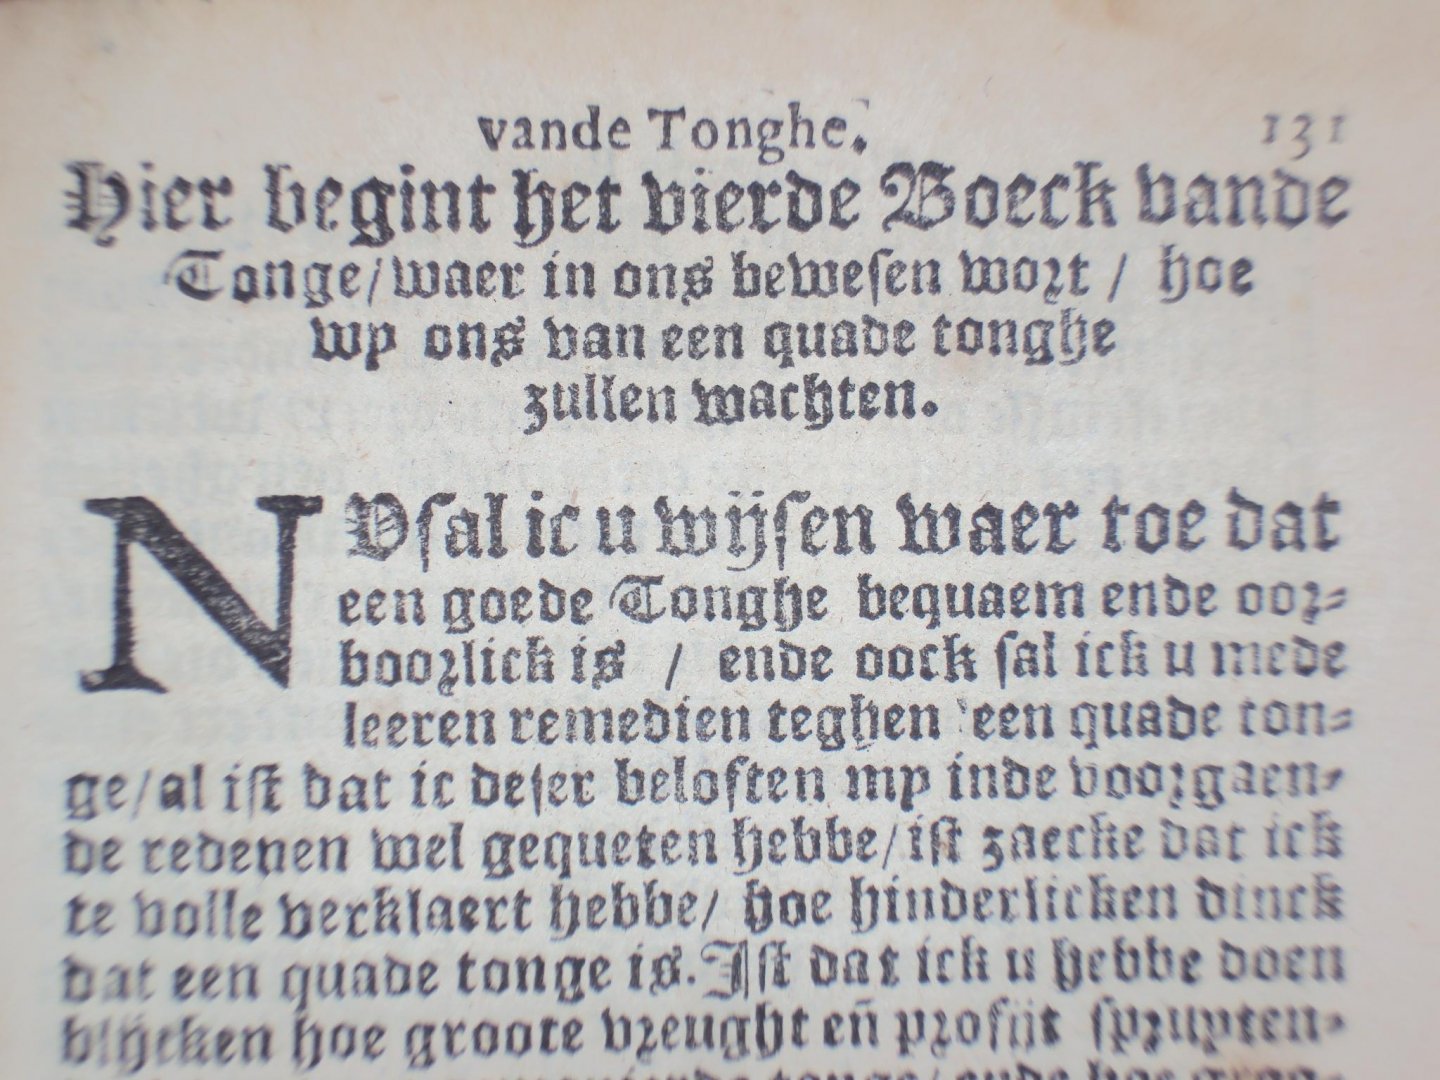 vande Tonghe. 131
Hier begint het vierde Boeck vande
Tonge/waer in ons beweſen wort / hoe
wy ons van een quade tonghe
zullen wachten.
NV ſal ic u wijſen waer toe dat
een goede Tonghe bequaem ende oor-
boorlick is / ende oock ſal ick u mede
leeren remedien teghen een quade ton-
ge/al iſt dat ic deſer beloften my inde voorgaen-
de redenen wel gequeten hebbe/iſt zaecke dat ick
te volle verklaert hebbe/ hoe hinderlicken dinck
dat een quade tonge is. Iſt dat ick u hebbe doen
blijcken hoe groote vreught eñ profijt ſpruyten-
tonge/ ende hoe